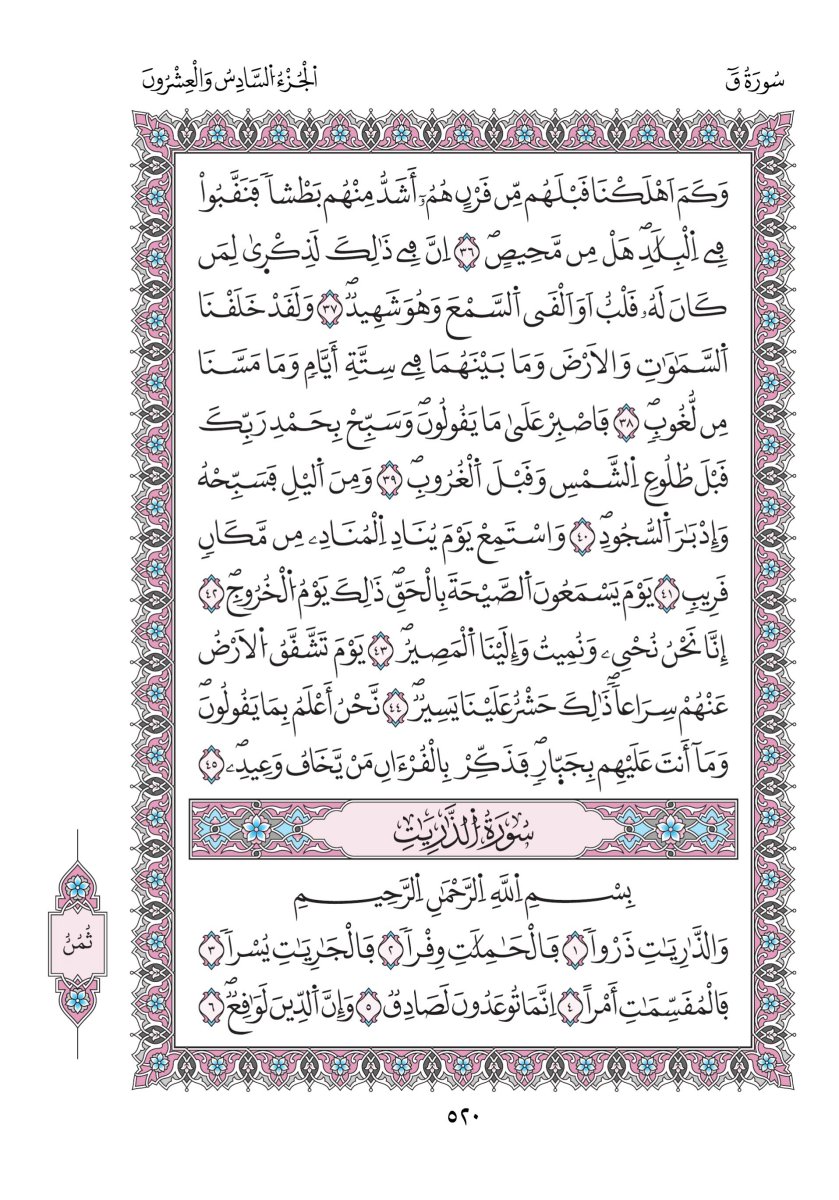 سُورَةُ قٓ
اَ۬لْجُزْءُ اُ۬لسَّادِسُ وَالْعِشْرُونَ
وَكَمَ اَهْلَكْنَا قَبْلَهُم مِّن قَرْنٍ هُمُۥٓ أَشَدُّ مِنْهُم بَطْشاٗ فَنَقَّبُواْ
فِے اِ۬لْبِلَٰدِۖ هَلْ مِن مَّحِيصٍۖ ٣٦ اِنَّ فِے ذَٰلِكَ لَذِكْر۪يٰ لِمَن
كَانَ لَهُۥ قَلْبٌ اَوَ اَلْقَي اَ۬لسَّمْعَ وَهُوَ شَهِيدٞۖ ٣٧ وَلَقَدْ خَلَقْنَا
اَ۬لسَّمَٰوَٰتِ وَالَارْضَ وَمَا بَيْنَهُمَا فِے سِتَّةِ أَيَّامٖ وَمَا مَسَّنَا
مِن لُّغُوبٖۖ ٣٨ فَاصْبِرْ عَلَىٰ مَا يَقُولُونَۖ وَسَبِّحْ بِحَمْدِ رَبِّكَ
قَبْلَ طُلُوعِ اِ۬لشَّمْسِ وَقَبْلَ اَ۬لْغُرُوبِۖ ٣٩ وَمِنَ اَ۬ليْلِ فَسَبِّحْهُ
وَإِدْبَٰرَ اَ۬لسُّجُودِۖ ٤٠ وَاسْتَمِعْ يَوْمَ يُنَادِ اِ۬لْمُنَادِۦ مِن مَّكَانٖ
قَرِيبٖ ٤١ يَوْمَ يَسْمَعُونَ اَ۬لصَّيْحَةَ بِالْحَقِّۖ ذَٰلِكَ يَوْمُ اُ۬لْخُرُوجِۖ ٤٢
إِنَّا نَحْنُ نُحْيِۦ وَنُمِيتُ وَإِلَيْنَا اَ۬لْمَصِيرُۖ ٤٣ يَوْمَ تَشَّقَّقُ اُ۬لَارْضُ
عَنْهُمْ سِرَاعاٗۖ ذَٰلِكَ حَشْرٌ عَلَيْنَا يَسِيرٞۖ ٤٤ نَّحْنُ أَعْلَمُ بِمَا يَقُولُونَۖ
وَمَآ أَنتَ عَلَيْهِم بِجَبّ۪ارٖۖ فَذَكِّرْ بِالْقُرْءَانِ مَنْ يَّخَافُ وَعِيدِۦۖ ٤٥
سُورَةُ اُ۬لذَّٰرِيَٰتِ
بِسْمِ اِ۬للَّهِ اِ۬لرَّحْمَٰنِ اِ۬لرَّحِيمِ
وَالذَّٰرِيَٰتِ ذَرْواٗ ١ فَالْحَٰمِلَٰتِ وِقْراٗ ٢ فَالْجَٰرِيَٰتِ يُسْراٗ ٣
فَالْمُقَسِّمَٰتِ أَمْراً ٤ اِنَّمَا تُوعَدُونَ لَصَادِقٞ ٥ وَإِنَّ اَ۬لدِّينَ لَوَٰقِعٞۖ ٦
ثُمُنُ
٥٢٠